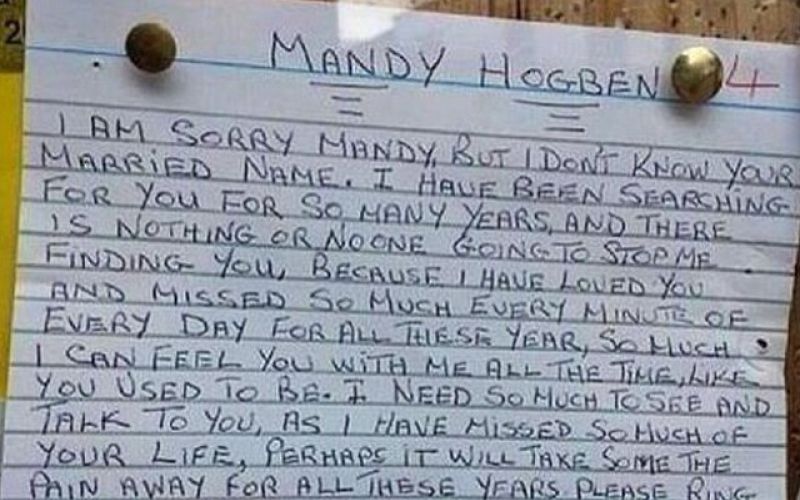 2
MANDY HOGBEN 4
I AM SORRY MANDY, BUT I DON'T KNOW YOUR
MARRIED NAME. I HAVE BEEN SEARCHING
FOR YOU FOR SO MANY YEARS, AND THERE
IS NOTHING OR NOONE GOING TO STOP ME
FINDING YOU, BECAUSE I HAVE LOVED YOU
AND MISSED SO MUCH EVERY MINUTE OF
EVERY DAY FOR ALL THESE YEAR, SO MUCH
I CAN FEEL YOU WITH ME ALL THE TIME, LIKE
YOU USED TO BE. I NEED SO MUCH TO SEE AND
TALK TO YOU, AS I HAVE MISSED SO MUCH OF
YOUR LIFE, PERHAPS IT WILL TAKE SOME THE
PAIN AWAY FOR ALL THESE YEARS PLEASE RING